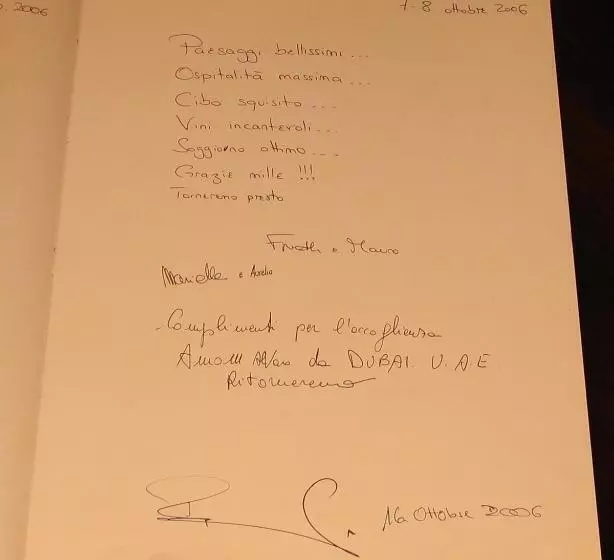 2006
7-8 ottobre 2006
Paesaggi bellissimi...
Ospitalità massima...
Cibo squisito...
Vini incantevoli...
Soggiorno ottimo...
Grazie mille !!!
Torneremo presto
e Mauro
Mariella e Aurelio
- Complimenti per l'accoglienza
da DUBAI. U.A.E
Ritorneremo
16 Ottobre 2006